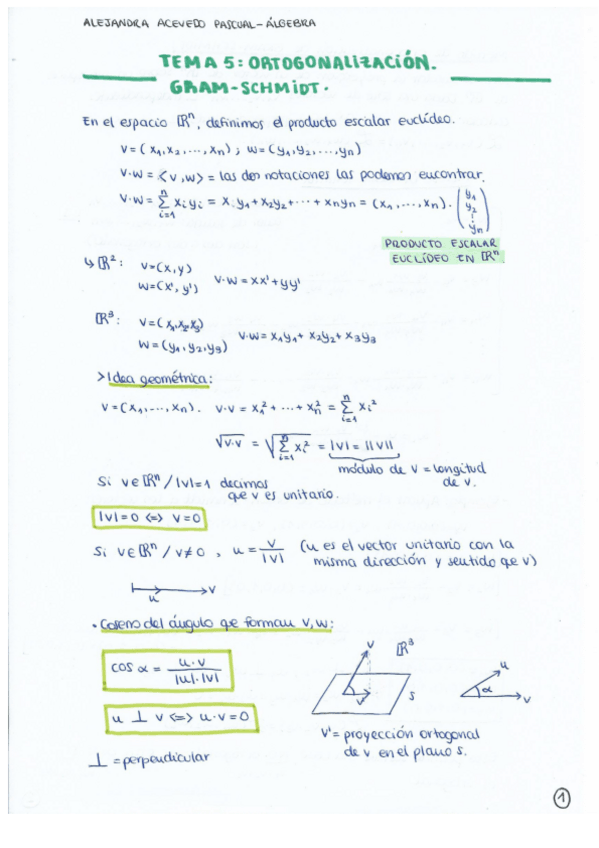 ALEJANDRA ACEVEDO PASCUAL - ÁLGEBRA
TEMA 5: ORTOGONALIZACIÓN.
GRAM-SCHMIDT.
En el espacio ℝⁿ, definimos el producto escalar euclídeo.
v = (x₁, x₂, ..., xₙ) ; w = (y₁, y₂, ..., yₙ)
v·w = <v, w> = las dos notaciones las podemos encontrar.
v·w = Σᵢ₌₁ⁿ xᵢyᵢ = x₁y₁ + x₂y₂ + ··· + xₙyₙ = (x₁, ..., xₙ) · (y₁ y₂ ⋮ yₙ)
PRODUCTO ESCALAR
EUCLÍDEO EN ℝⁿ.
↳ ℝ²: v=(x, y)
w=(x', y') v·w = xx' + yy'
ℝ³: v=(x₁,x₂,x₃)
w=(y₁, y₂, y₃) v·w = x₁y₁ + x₂y₂ + x₃y₃
> Idea geométrica:
v = (x₁, ..., xₙ). v·v = x₁² + ··· + xₙ² = Σᵢ₌₁ⁿ xᵢ²
√v·v = √Σᵢ₌₁ⁿ xᵢ² = |v| = ||v||
módulo de v = longitud
de v.
Si v∈ℝⁿ / |v|=1 decimos
que v es unitario.
|v|=0 <=> v=0
Si v∈ℝⁿ / v≠0 , u = v/|v| (u es el vector unitario con la
misma dirección y sentido qe v)
u v
· Coseno del ángulo qe forman v, w:
cos α = u·v / |u|·|v|
v ℝ³
v' s
u
α v
u ⊥ v <=> u·v = 0
v' = proyección ortogonal
de v en el plano s.
⊥ = perpendicular
1